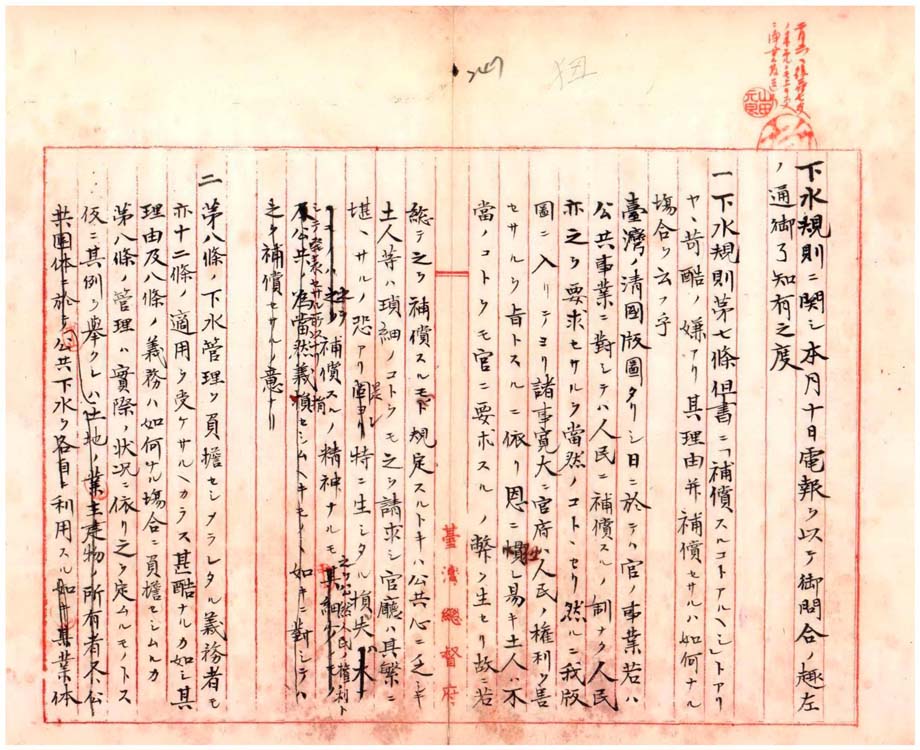 下水規則ニ関シ本月十日電報ヲ以テ御問合ノ趣左
ノ通御了知有之度
一 下水規則第七條但書ニ「補償スルコトアルヘシ」トアリ
ヤヽ苛酷ノ嫌アリ其理由并補償セサルハ如何ナル
場合ヲ云フ乎
臺灣ノ清國版圖タリシ日ニ於テハ官ノ事業若ハ
公共事業ニ對シテハ人民ニ補償スルノ制ナク人民
亦之ヲ要求セサルヲ當然ノコトヽセリ然ルニ我版
圖ニ入リテヨリ諸事寛大ニ官府ハ人民ノ權利ヲ害
セサルヲ旨トスルニ依リ恩ニ慣レ易キ土人ハ不
當ノコトヲモ官ニ要求スルノ弊ヲ生セリ故ニ若
臺灣總督府
総テ之ヲ補償スルモノト規定スルトキハ公共心ニ乏シキ
土人等ハ瑣細ノコトヲモ之ヲ請求シ官廳ハ其繁ニ
堪ヘサルノ恐アリ
特ニ生シタル損失ハ
補償スルノ精神ナルモ
之ヲ公然人民ノ權利ト
シテ發表セサル
公共ノ為當然義損セシムヘキモノヽ如キニ對シテハ
之ヲ補償セサルノ意ナリ
二 第八條ノ下水管理ヲ負擔セシメラレタル義務者モ
亦十二條ノ適用ヲ受ケサルヘカラス甚酷ナルカ如シ其
理由及八條ノ義務ハ如何ナル場合ニ負擔セシムルカ
第八條ノ管理ハ實際ノ状況ニ依リ之ヲ定ムルモノトス
仮ニ其例ヲ擧クレハ土地ノ業主建物ノ所有者不公
共團体ニ於テ公共下水ヲ各自ニ利用スル如キ其業体
247